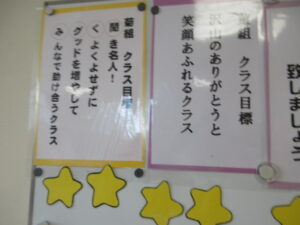 致しましょう
組 クラス目標
沢山のありがとうと
笑顔あふれるクラス
菊組 クラス目標
聞き名人!
くよくよせずに
グッドを増やして
みんなで助け合うクラス